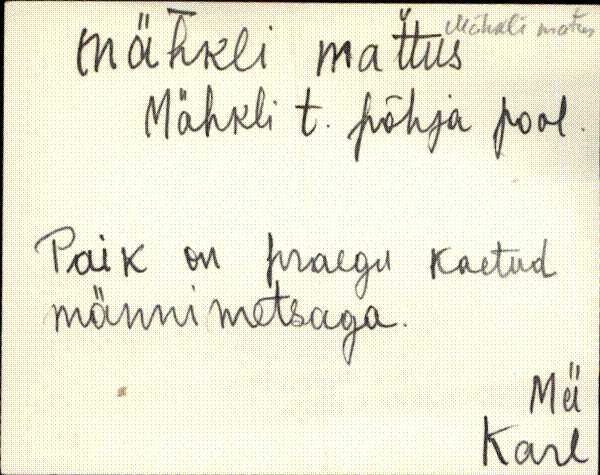 Mähkli mattus
Mähkli matus
Mähkli t. põhja pool.
Paik on praegu kaetud
männimetsaga.
Mä
Karl